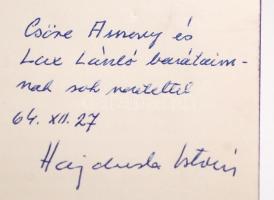 Csöre Ammy és
Lax László barátaim-
nak sok szeretettel
64. XII. 27
Hajduska István